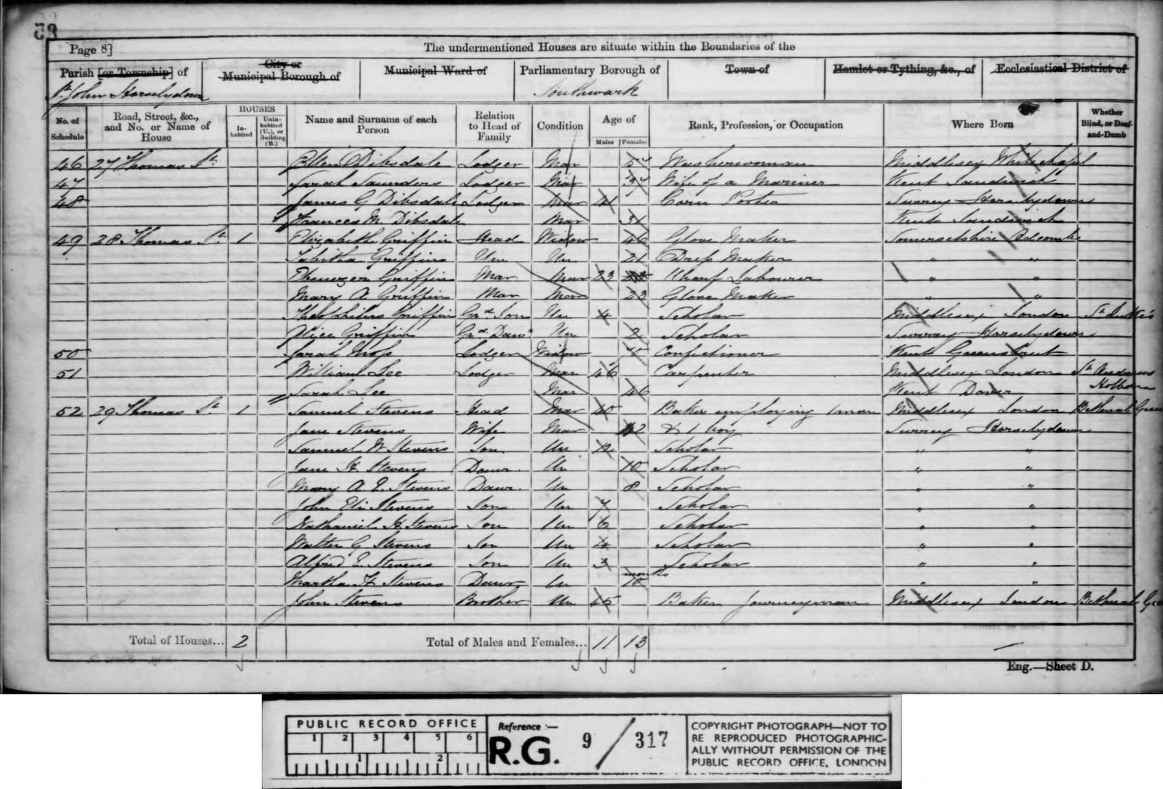 53
Page 8] The undermentioned Houses are situate within the Boundaries of the
Parish [or Township] of City or Municipal Borough of Municipal Ward of Parliamentary Borough of Town of Hamlet or Tything, &c., of Ecclesiastical District of
St John Horselydown Southwark
No. of Schedule Road, Street, &c., and No. or Name of House HOUSES Inhabited Uninhabited (U.), or Building (B.) Name and Surname of each Person Relation to Head of Family Condition Age of Males Females Rank, Profession, or Occupation Where Born Whether Blind, or Deaf-and-Dumb
46 27 Thomas St Ellen Dibsdale Lodger Mar Washerwoman Middlesex Whitechapel
47 Sarah Saunders Lodger Mar Wife of a Mariner Kent Sandwich
48 James G Dibsdale Lodger Mar 41 Corn Porter Surrey Horselydown
Frances M. Dibsdale Mar Kent Sandwich
49 28 Thomas St 1 Elizabeth Griffin Head Widow 46 Glove Maker Somersetshire
Tabitha Griffin Un 21 Dress Maker " "
Ebenezer Griffin Mar Mar 23 Wharf Labourer " "
Mary A Griffin Mar Mar 23 Glove Maker " "
Theophilus Griffin Gr Son Un 4 Scholar Middlesex London St Luke's
Alice Griffin Gr Daur Un 2 Scholar Surrey Horselydown
50 Sarah Lodger Widow Confectioner Kent
51 William Lee Lodger Mar 46 Carpenter Middlesex London St Andrews Holborn
Sarah Lee Mar 46 Kent Dover
52 29 Thomas St 1 Samuel Stevens Head Mar 40 Baker employing 1 man Middlesex London Bethnal Green
Jane Stevens Wife Mar 42 & 1 boy Surrey Horselydown
Samuel W Stevens Son Un 12 Scholar " "
Jane H. Stevens Daur Un 10 Scholar " "
Mary A E. Stevens Daur Un 8 Scholar " "
John Eli Stevens Son Un 7 Scholar " "
Nathaniel H Stevens Son Un 6 Scholar " "
Walter G Stevens Son Un 4 Scholar " "
Alfred E Stevens Son Un 3 Scholar " "
Martha H Stevens Daur Un months 10 " "
John Stevens Brother Un 45 Baker Journeyman Middlesex London Bethnal Green
Total of Houses... 2 Total of Males and Females... 11 13
Eng.—Sheet D.
PUBLIC RECORD OFFICE
1 2 3 4 5 6
1 2
Reference :—
R.G. 9 / 317
COPYRIGHT PHOTOGRAPH—NOT TO
BE REPRODUCED PHOTOGRAPHIC-
ALLY WITHOUT PERMISSION OF THE
PUBLIC RECORD OFFICE, LONDON